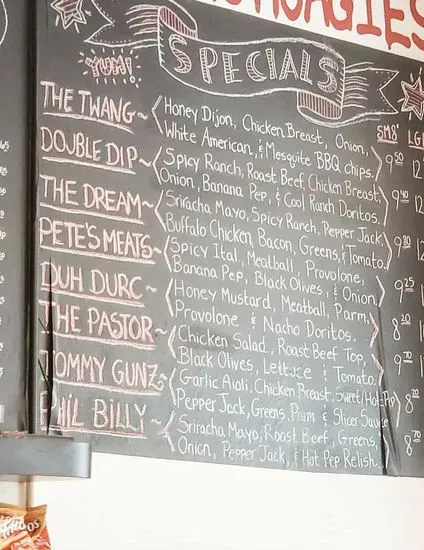 HOAGIES
YUM!
SPECIALS
SM8" LG
THE TWANG~ Honey Dijon, Chicken Breast, Onion,
White American, & Mesquite BBQ chips. 9.50 12
DOUBLE DIP~ Spicy Ranch, Roast Beef, Chicken Breast,
Onion, Banana Pep, & Cool Ranch Doritos. 9.40 12
THE DREAM~ Sriracha Mayo, Spicy Ranch, Pepper Jack,
Buffalo Chicken, Bacon, Greens, & Tomato. 9.80 12
PETE'S MEATS~ Spicy Ital, Meatball, Provolone,
Banana Pep, Black Olives, & Onion. 9.25
DUH DURC~ Honey Mustard, Meatball, Parm,
Provolone & Nacho Doritos. 8.20
THE PASTOR~ Chicken Salad, Roast Beef Top,
Black Olives, Lettuce & Tomato. 9.70
TOMMY GUNZ~ Garlic Aioli, Chicken Breast, Sweet/Hot Pep
Pepper Jack, Greens, Parm & Slicer Sauce 8.80
PHIL BILLY~ Sriracha Mayo, Roast Beef, Greens,
Onion, Pepper Jack, & Hot Pep Relish. 8.70